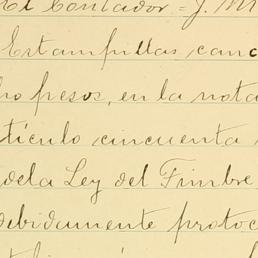 El Contador = J. M
Estampillas canc
ho pesos, en la nota
tículo cincuenta
de la Ley del Timbre
debidamente protoc